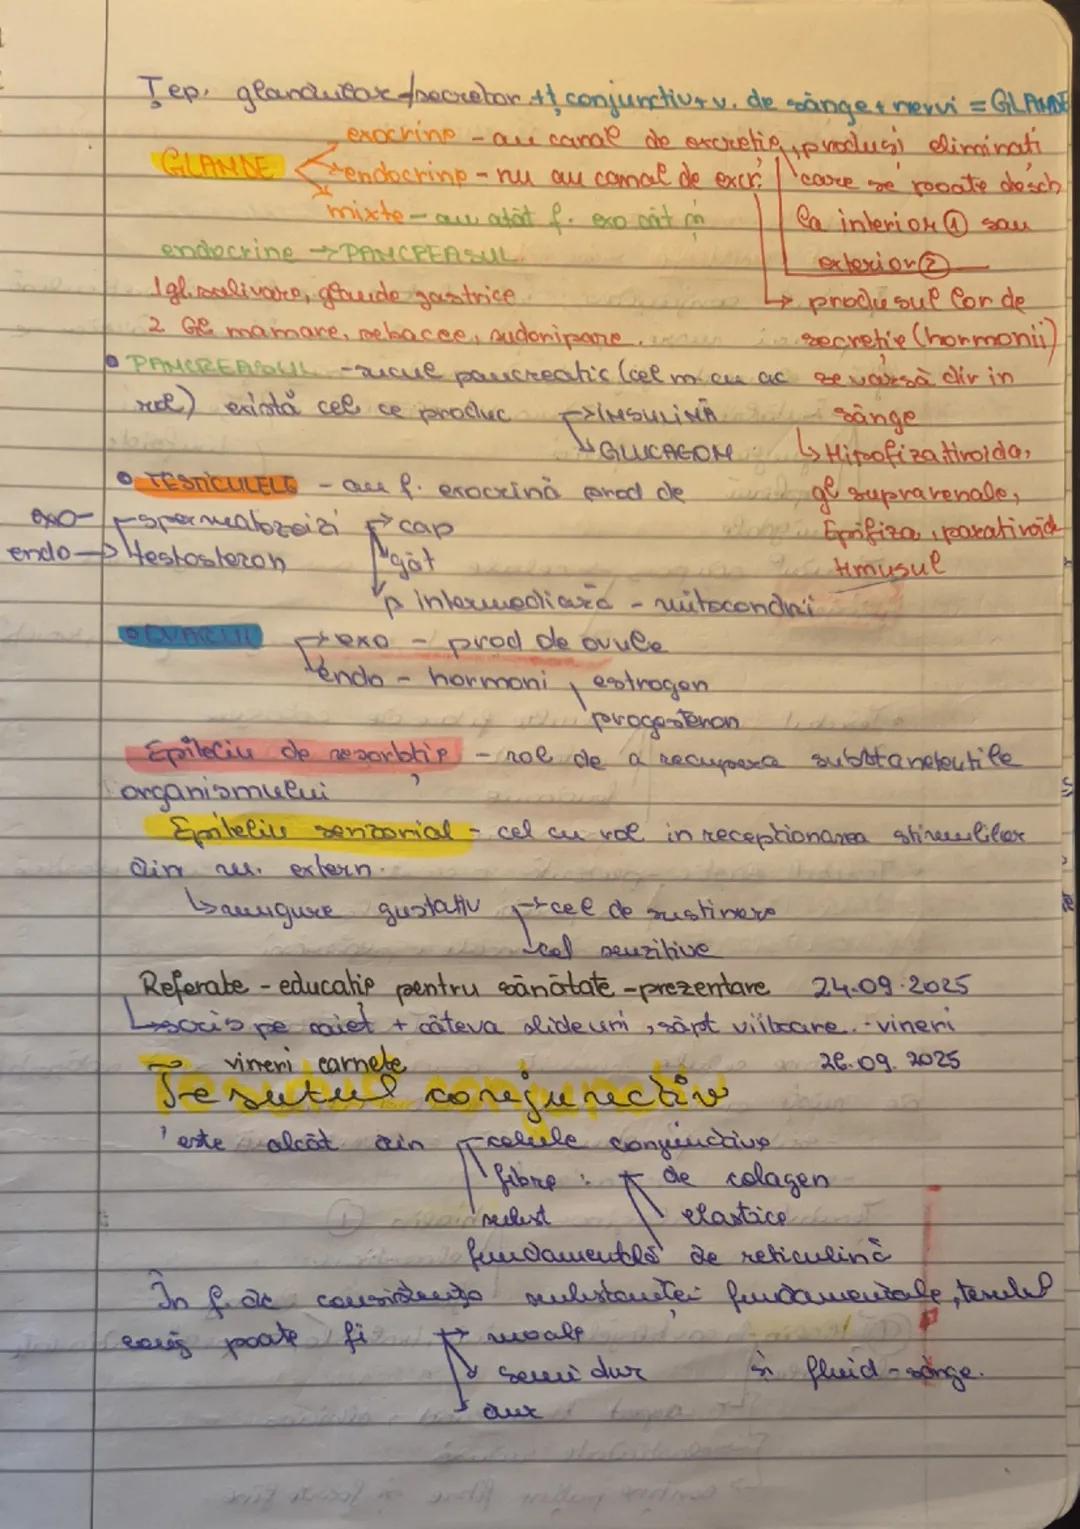 Țep. glandular/secretor + ț conjunctiv + v. de sânge + nervi = GLANDE
exocrine - au canal de excreție, produși eliminați
GLANDE endocrine - nu au canal de excr. care se poate desch
mixte - au atât f. exo cât și la interior ① sau
endocrine → PANCREASUL exterior ②
1 gl. salivare, glande gastrice produsul lor de
2 Gl mamare, sebacee, sudoripare. secreție (hormonii)
PANCREASUL - sucul pancreatic (cel m cu ac se varsă dir in
rol) există cel ce produc → INSULINĂ sânge
→ GLUCAGON ↳ Hipofiza tiroida,
TESTICULELE - au f. exocrină prod de gl suprarenale,
exo- spermatozoizi → cap Epifiza, paratiroide
endo → testosteron gât timusul
p intermediară - mitocondrii
OVARELE exo - prod de ovule
endo - hormoni, estrogen
progesteron
Epiteliu de resorbție - rol de a recupera substanțe utile
organismului
Epiteliu senzorial - cel cu rol in recepționarea stimulilor
din m. extern.
↳ mugure gustativ → cel de susținere
cel senzitive
Referate - educație pentru sănătate - prezentare 24.09.2025
↳ scris pe caiet + câteva slideuri, săpt viitoare. - vineri
→ vineri carnete 26.09.2025
Țesutul conjunctiv
este alcăt din celule conjunctive
fibre : de colagen
subst elastice
fundamentlă de reticulină
In f. de consistența substanței fundamentale, tesutul
conj poate fi → moale
semi dur și fluid - sânge.
dur